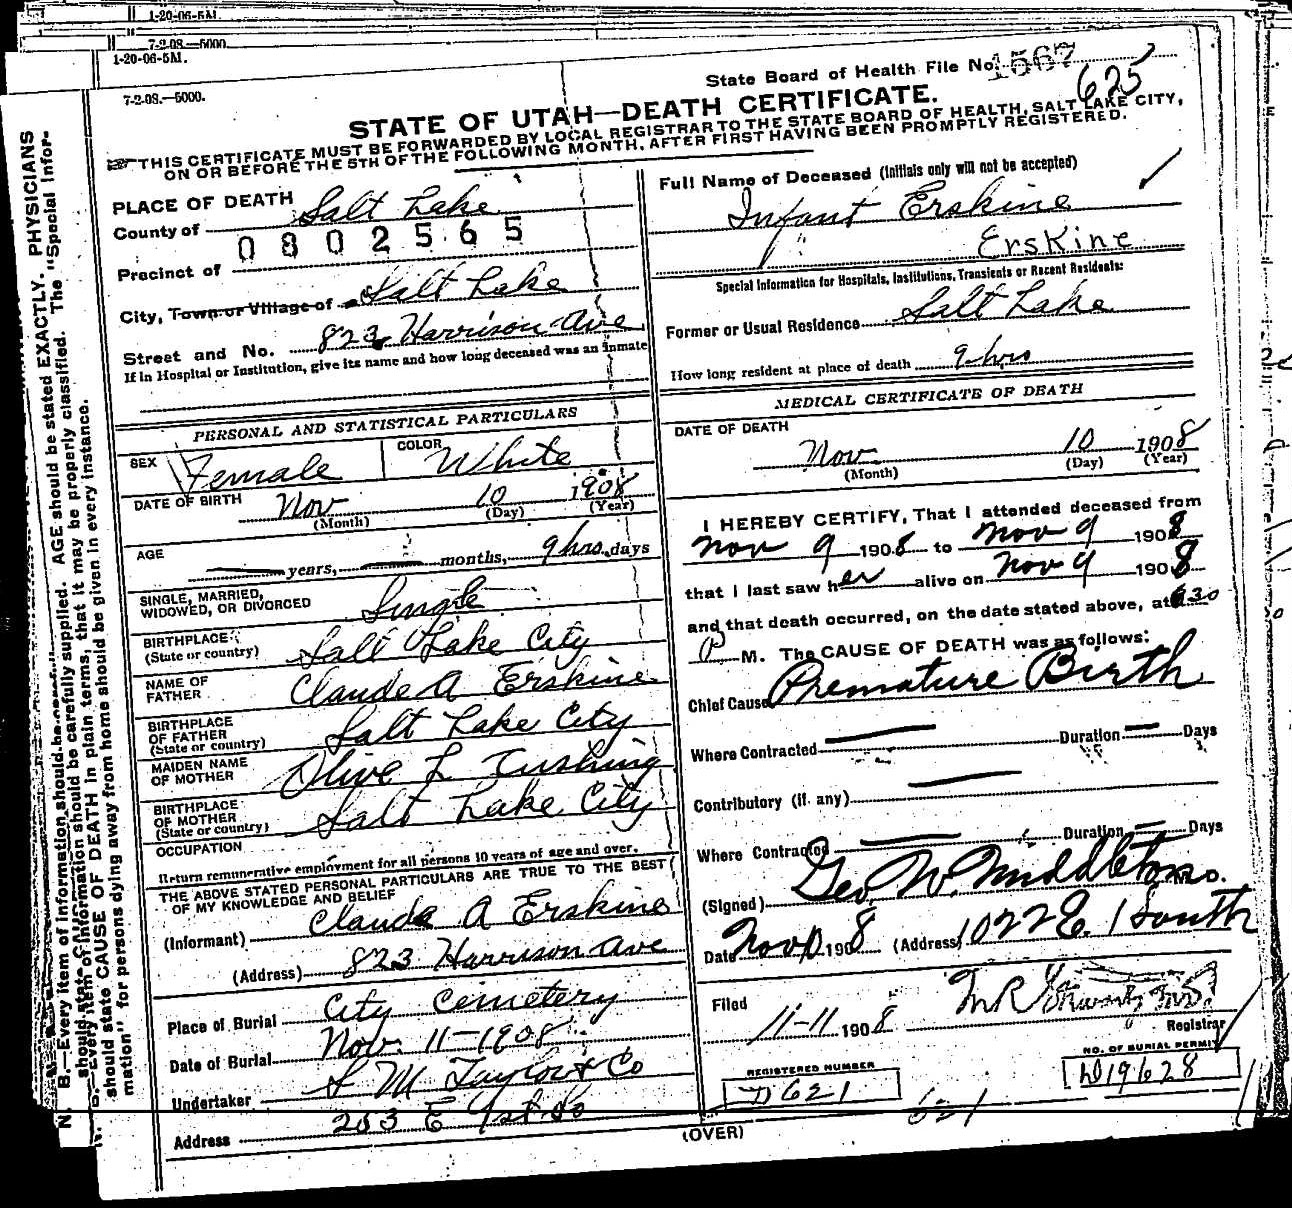 1-20-06-5M.
7-2-08.—5000.
1-20-06-5M.
7-2-08.—5000.
State Board of Health File No. 1567
625
STATE OF UTAH—DEATH CERTIFICATE.
THIS CERTIFICATE MUST BE FORWARDED BY LOCAL REGISTRAR TO THE STATE BOARD OF HEALTH, SALT LAKE CITY,
ON OR BEFORE THE 5TH OF THE FOLLOWING MONTH, AFTER FIRST HAVING BEEN PROMPTLY REGISTERED.
PLACE OF DEATH
County of Salt Lake
0802565
Precinct of
City, Town or Village of Salt Lake
Street and No. 823 Harrison Ave
If in Hospital or Institution, give its name and how long deceased was an inmate
PERSONAL AND STATISTICAL PARTICULARS
SEX Female COLOR White
DATE OF BIRTH Nov 10 1908
(Month) (Day) (Year)
AGE years, months, 9 hrs. days
SINGLE, MARRIED,
WIDOWED, OR DIVORCED Single
BIRTHPLACE
(State or country) Salt Lake City
NAME OF
FATHER Claude A Erskine
BIRTHPLACE
OF FATHER
(State or country) Salt Lake City
MAIDEN NAME
OF MOTHER Olive L Cushing
BIRTHPLACE
OF MOTHER
(State or country) Salt Lake City
OCCUPATION
Return remunerative employment for all persons 10 years of age and over.
THE ABOVE STATED PERSONAL PARTICULARS ARE TRUE TO THE BEST
OF MY KNOWLEDGE AND BELIEF
(Informant) Claude A Erskine
(Address) 823 Harrison Ave
Place of Burial City Cemetery
Date of Burial Nov. 11-1908
Undertaker S M Taylor & Co
Address 253 E 1st So
Full Name of Deceased (Initials only will not be accepted)
Infant Erskine
Erskine
Special Information for Hospitals, Institutions, Transients or Recent Residents:
Former or Usual Residence Salt Lake
How long resident at place of death 9 hrs
MEDICAL CERTIFICATE OF DEATH
DATE OF DEATH
Nov 10 1908
(Month) (Day) (Year)
I HEREBY CERTIFY, That I attended deceased from
Nov 9 1908 to Nov 9 1908
that I last saw her alive on Nov 9 1908
and that death occurred, on the date stated above, at 930
P M. The CAUSE OF DEATH was as follows:
Chief Cause Premature Birth
Where Contracted — Duration — Days
Contributory (if any) —
Where Contracted — Duration — Days
(Signed) Geo. W. Middleton MD.
Date Nov 10 1908 (Address) 1022 E. 1 South
Filed
11-11 1908 Registrar
REGISTERED NUMBER
D621
621
NO. OF BURIAL PERMIT
D19628
(OVER)
N. B.—Every item of information should be carefully supplied. AGE should be stated EXACTLY. PHYSICIANS
should state CAUSE OF DEATH in plain terms, that it may be properly classified. The "Special Infor-
mation" for persons dying away from home should be given in every instance.